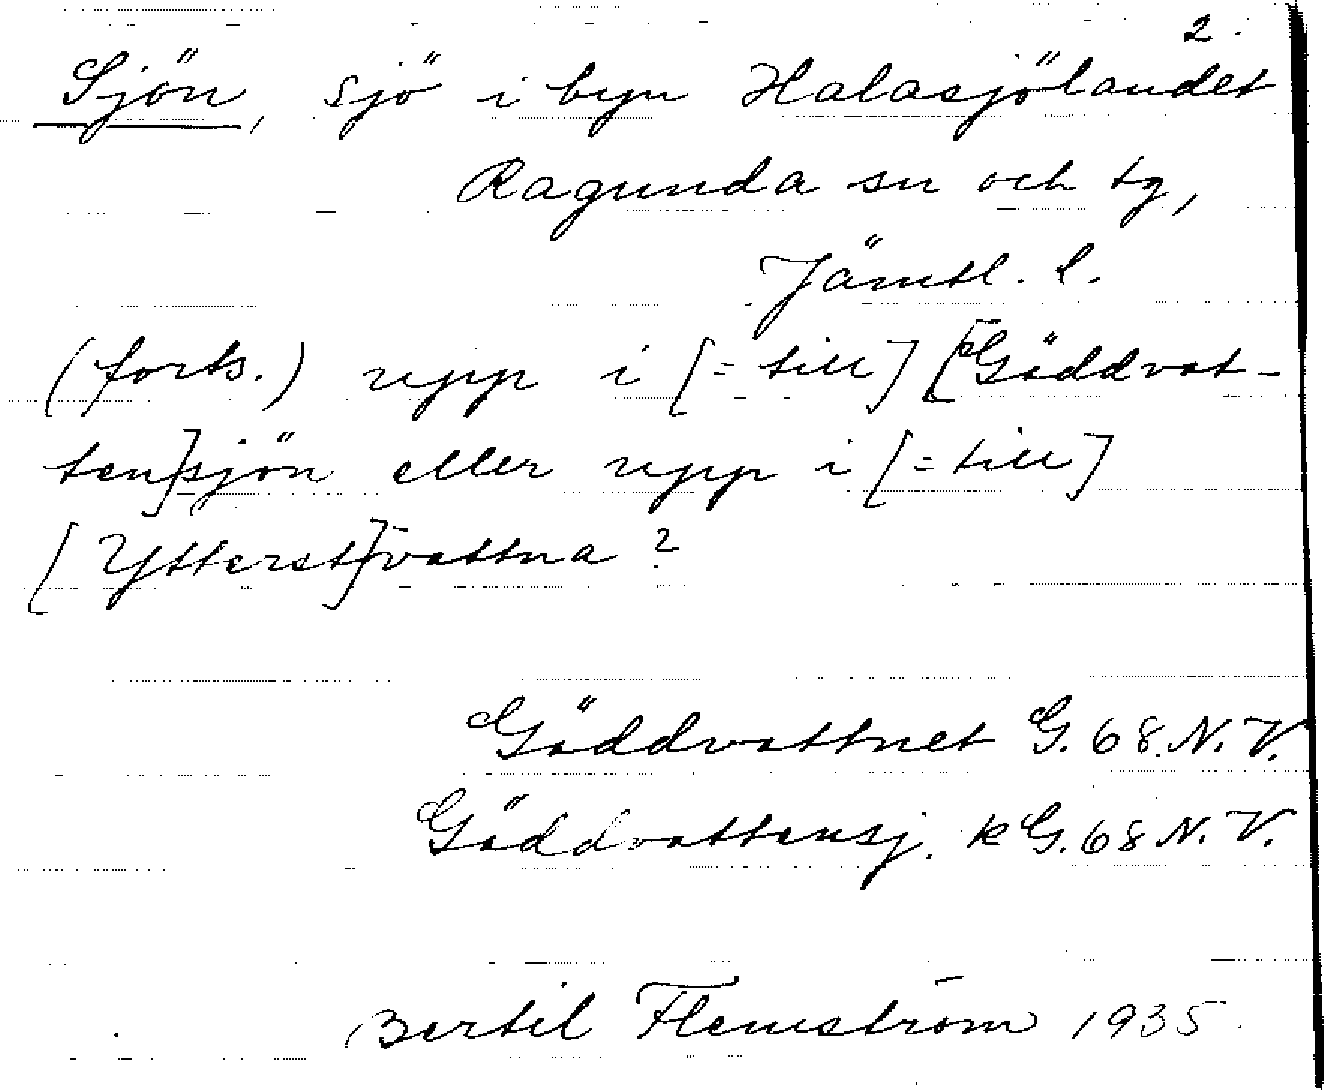 2.
Sjön, sjö i byn Halasjölandet
Ragunda sn och tg,
Jämtl. l.
(forts.) upp i [= till] [Gäddvat-
ten]sjön eller upp i [= till]
[Ytterst]vattna?
Gäddvattnet G. 68. N. V.
Gäddvattensj. k G. 68 N. V.
Bertil Flemström 1935.